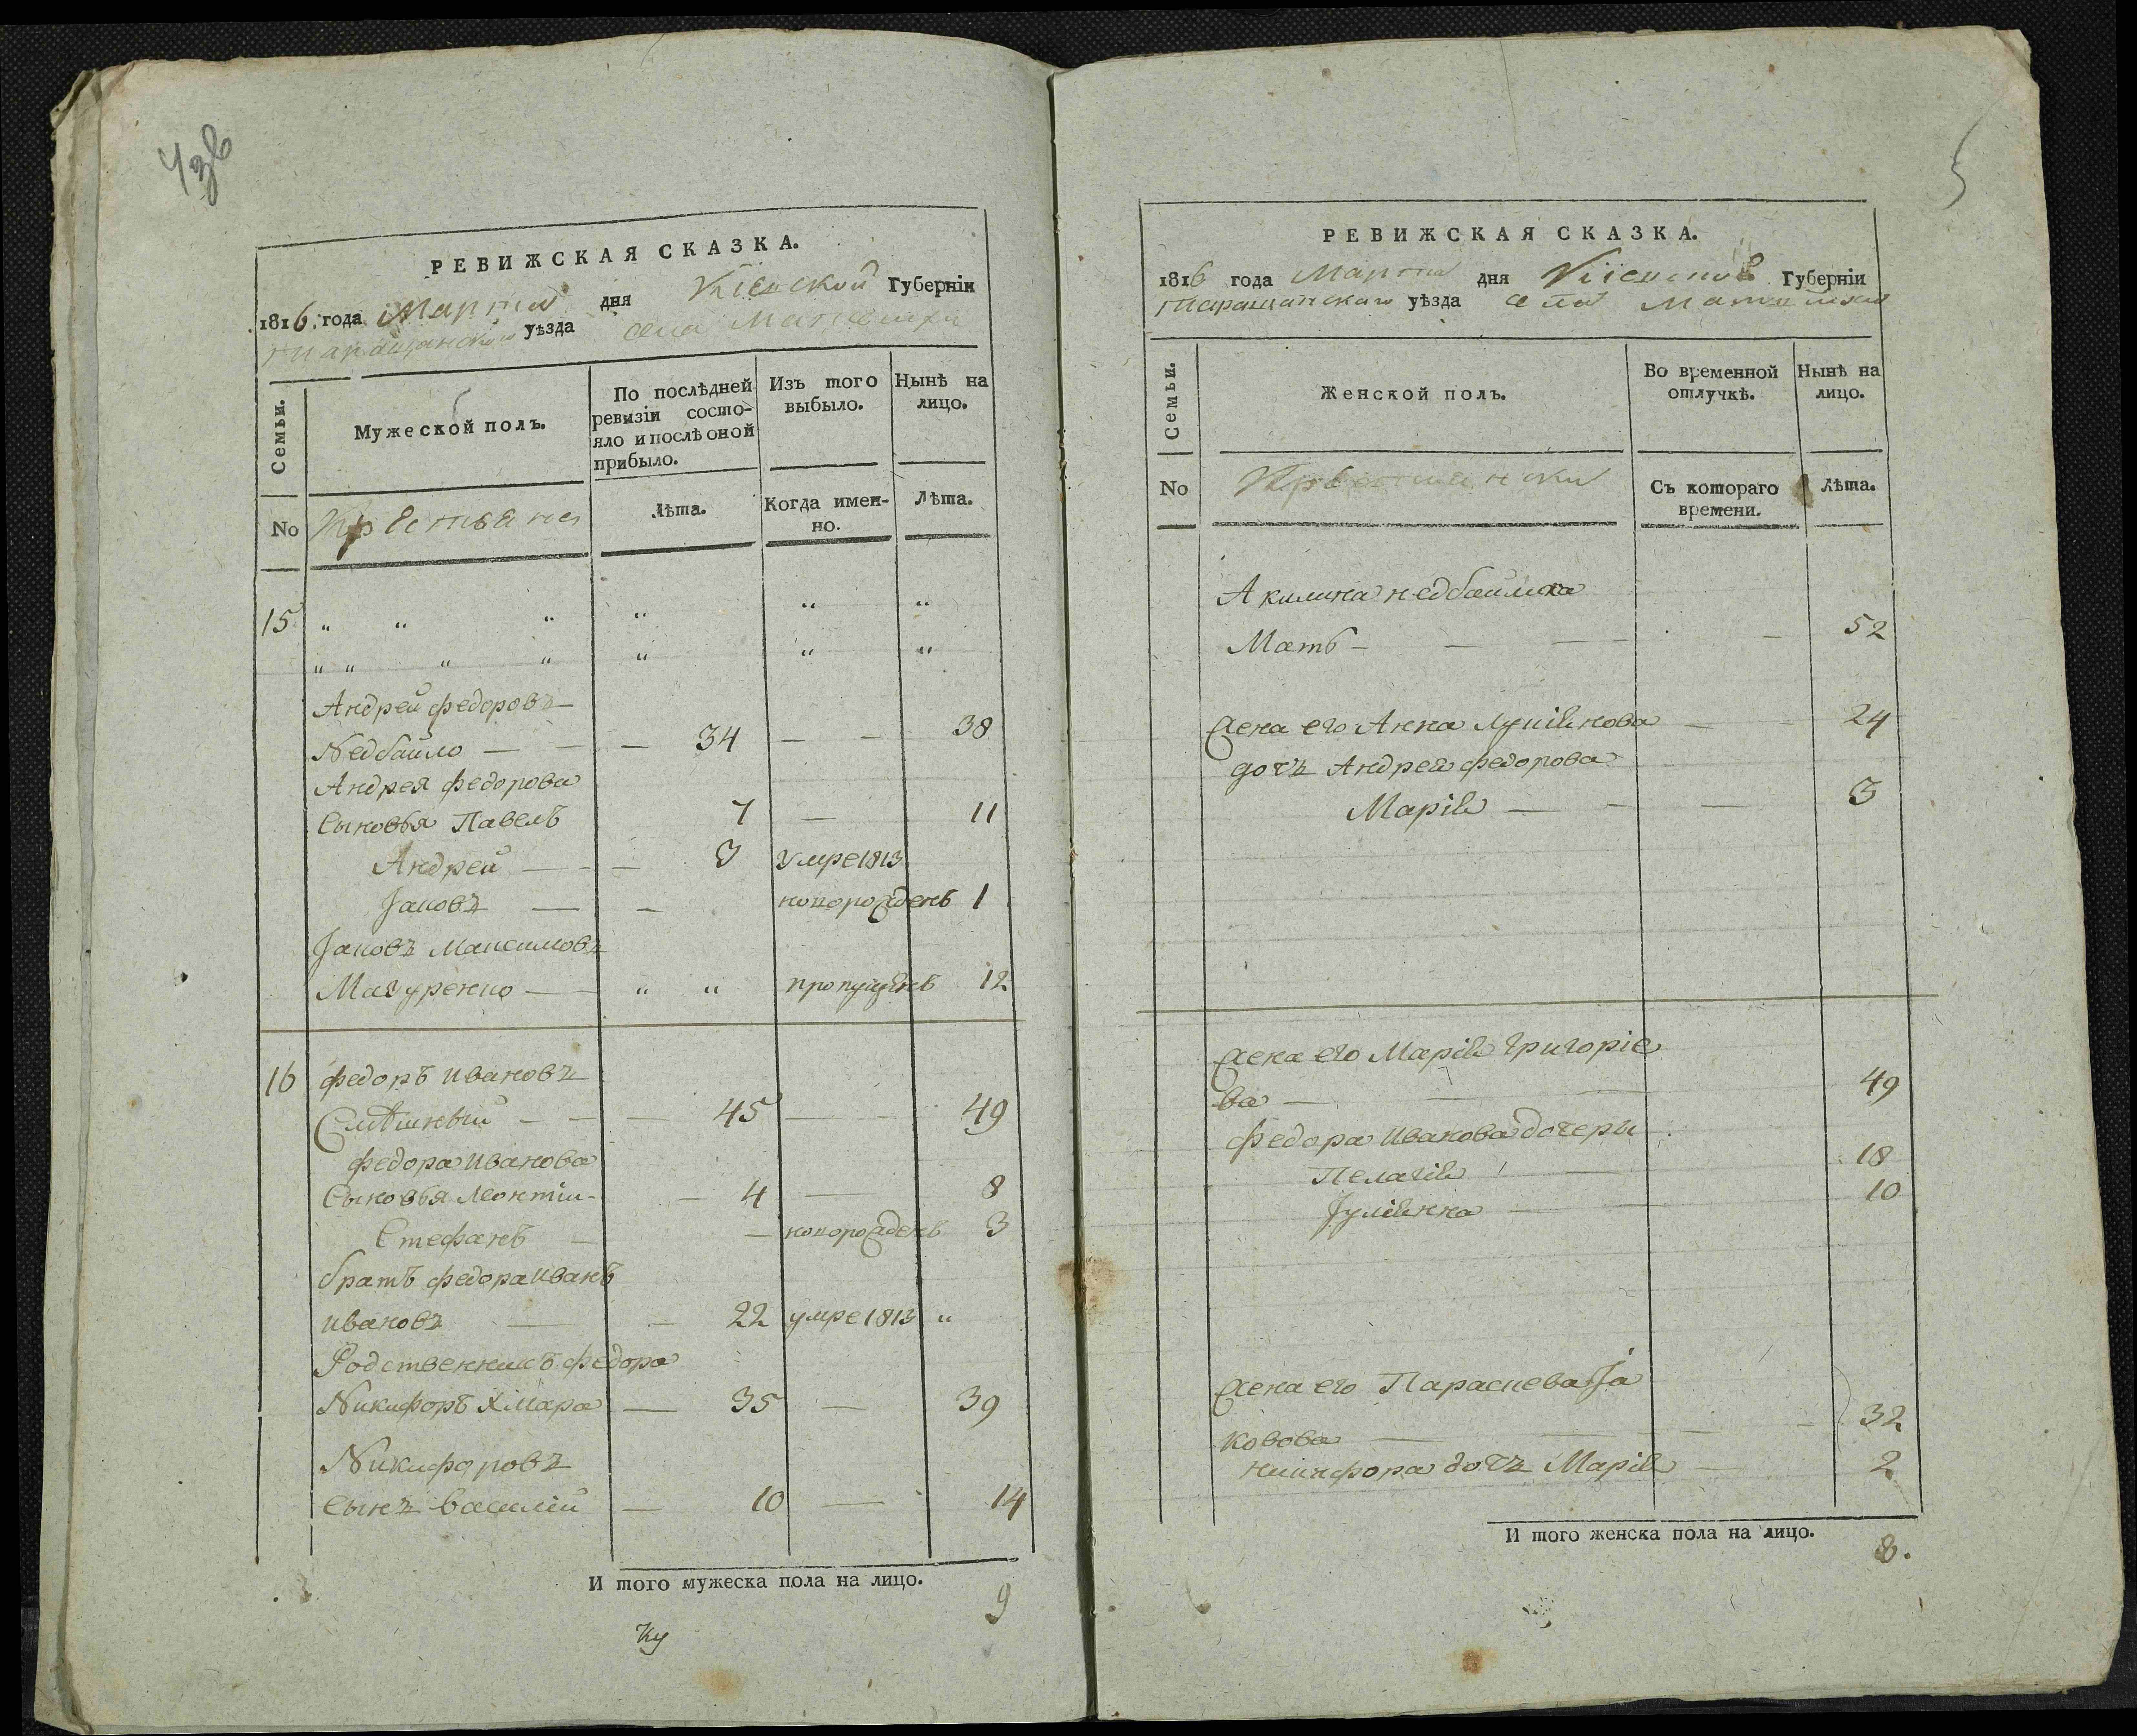 43в
РЕВИЖСКАЯ СКАЗКА.
1816 года Марта дня Кіевской Губерніи
Таращанского уѣзда села
Семьи.
Мужеской полъ.
По послѣдней ревизіи состо-
яло и послѣ оной
прибыло.
Изъ того
выбыло.
Нынѣ на
лицо.
No
Крестьяне
Лѣта.
Когда имен-
но.
Лѣта.
15 „ „ „ „ „ „
„ „ „ „ „ „ „
Андрей федоровъ —
Недбайло — — — 34 — — 38
Андрея федорова
Сыновья Павелъ 7 — 11
Андрей — — 3 умре 1813
Іаковъ — — новорожденъ 1
Іаковъ Максимовъ
Мазуренко — „ „ пропущенъ 12
16 федоръ Ивановъ
Смѣшный — — — 45 — — 49
федора Иванова
Сыновья Леонтіи - — 4 — 8
Стефанъ — — новорожденъ 3
братъ федора Иванъ
Ивановъ — — 22 умре 1813 „
Родственникъ федора
Никифоръ Хмара — 35 — 39
Никифоровъ
сынъ василій — 10 — 14
И того мужеска пола на лицо. 9
Ку
5
РЕВИЖСКАЯ СКАЗКА.
1816 года Марта дня Кіевской Губерніи
Таращанского уѣзда села
Семьи.
Женской полъ.
Во временной
отлучкѣ.
Нынѣ на
лицо.
No
Съ котораго
времени.
Лѣта.
Акилина недбайлиха
Мать — — — — 52
Жена его Анна — — 24
дочъ Андрея федорова
Марія — — — 3
Жена его Марія Григоріе
ва — — — 49
федора Иванова дочеры
Пелагія — 18
Іуліянна — — 10
Жена его Параскева Іа
ковова — — — — 32
никифора дочъ Марія — 2
И того женска пола на лицо. 8.